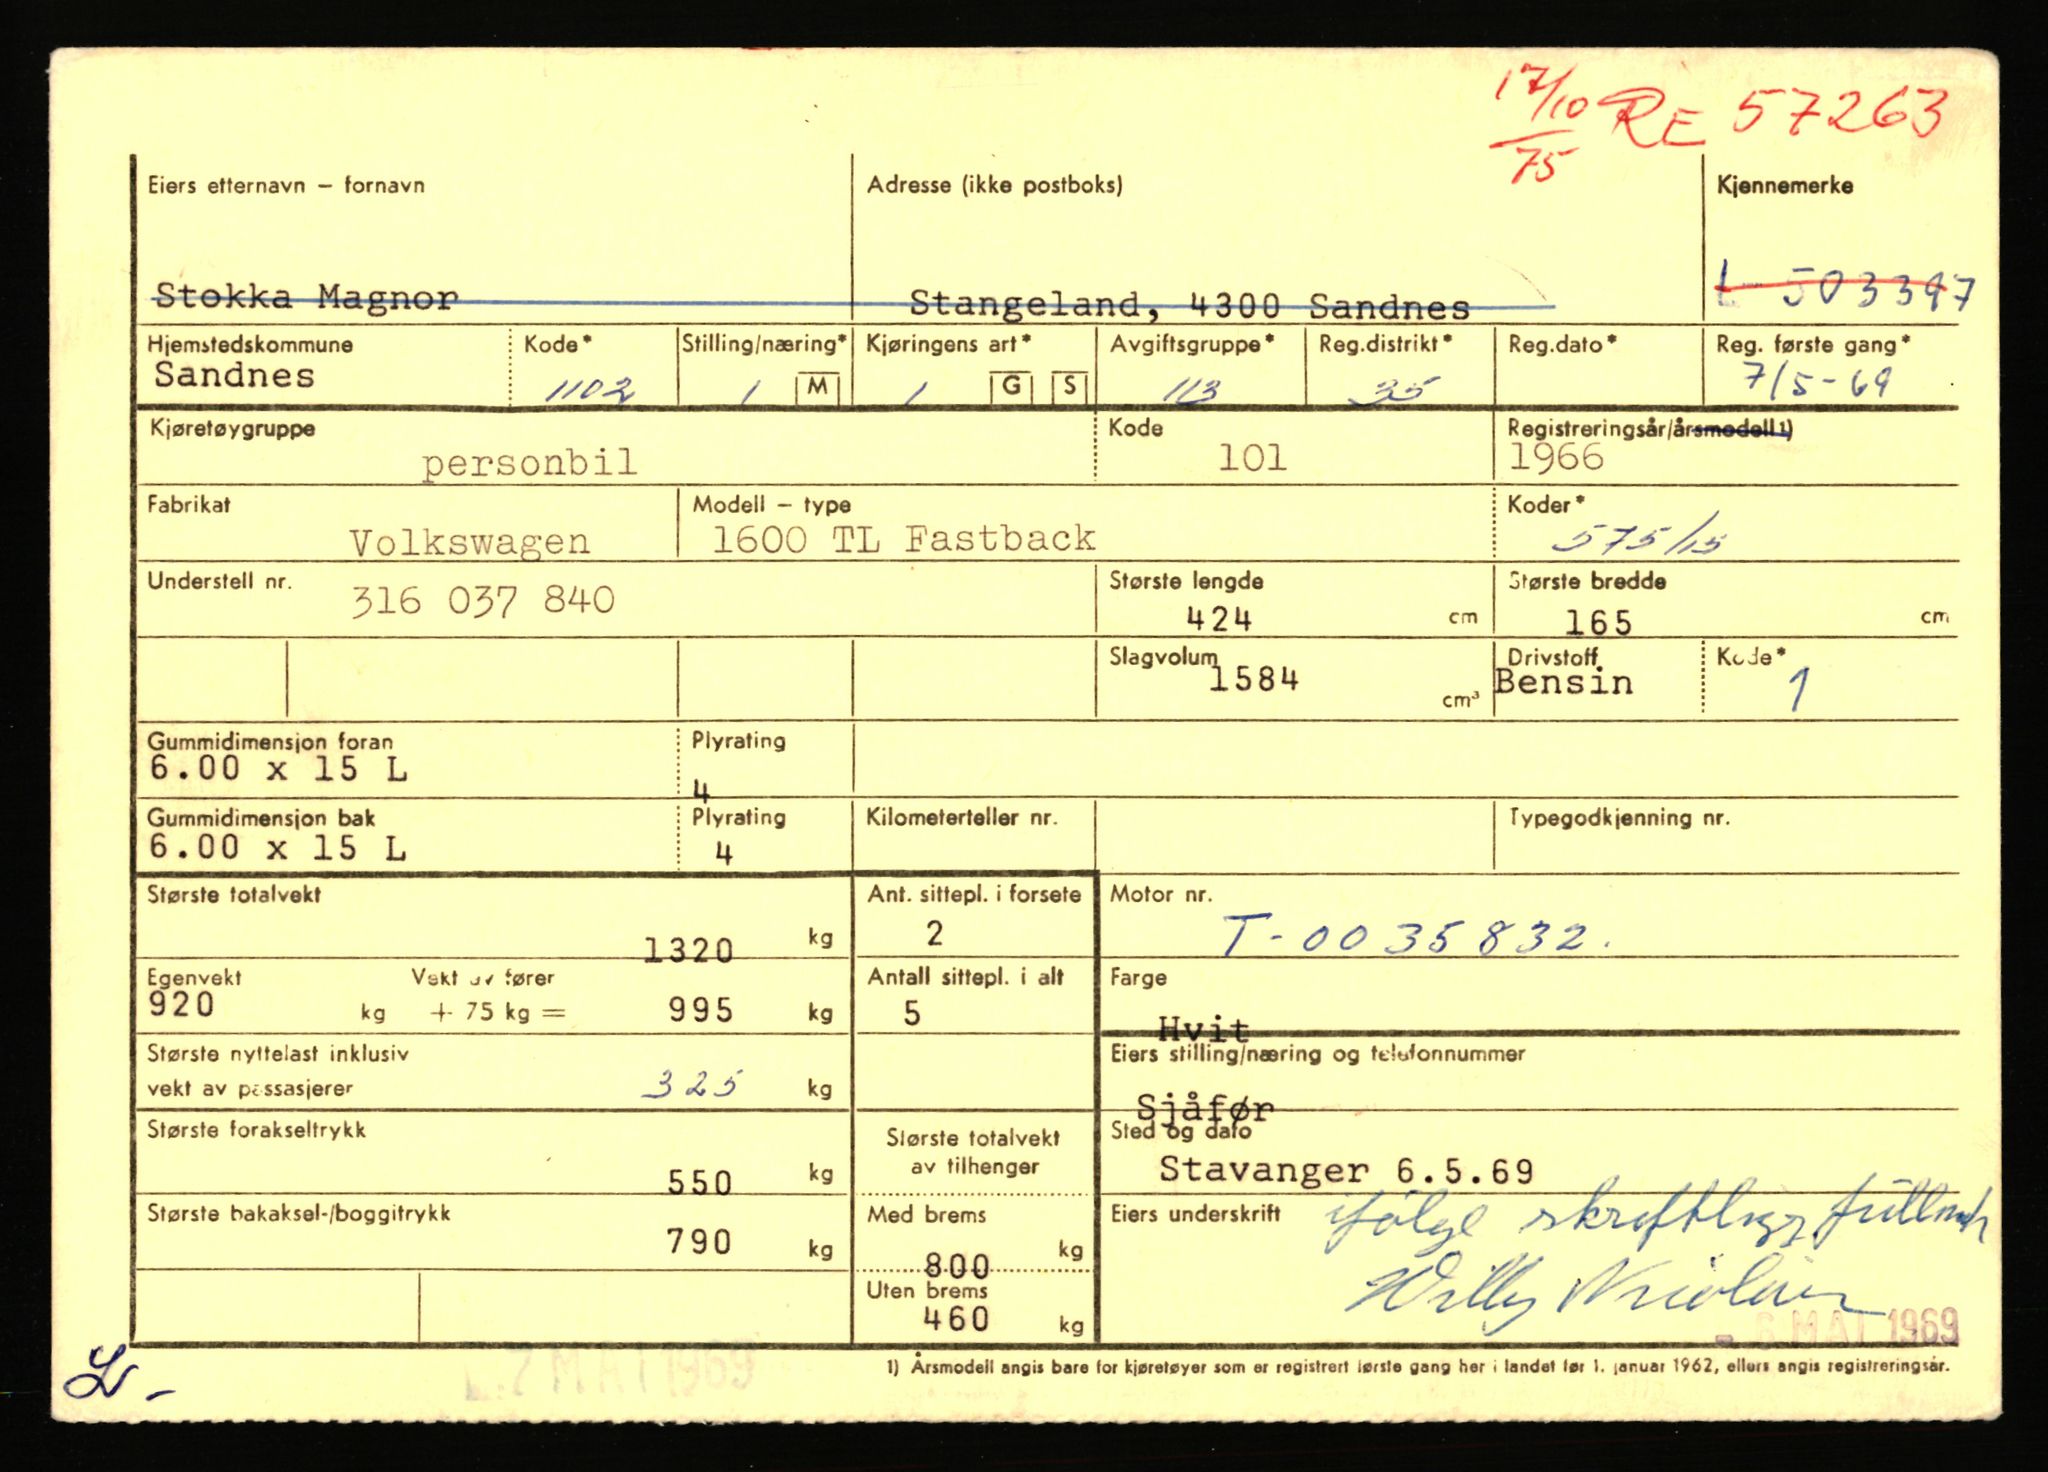 17/10 RE 57263
75
Eiers etternavn – fornavn Adresse (ikke postboks) Kjennemerke
Stokka Magnor Stangeland, 4300 Sandnes L 503397
Hjemstedskommune Kode* Stilling/næring* Kjøringens art* Avgiftsgruppe* Reg.distrikt* Reg.dato* Reg. første gang*
Sandnes 1102 1 M 1 G S 113 35 7/5-69
Kjøretøygruppe Kode Registreringsår/årsmodell 1)
personbil 101 1966
Fabrikat Modell – type Koder*
Volkswagen 1600 TL Fastback 575/15
Understell nr. Største lengde Største bredde
316 037 840 424 cm 165 cm
Slagvolum Drivstoff Kode*
1584 cm³ Bensin 1
Gummidimensjon foran Plyrating
6.00 x 15 L 4
Gummidimensjon bak Plyrating Kilometerteller nr. Typegodkjenning nr.
6.00 x 15 L 4
Største totalvekt Ant. sittepl. i forsete Motor nr.
1320 kg 2 T-0035832.
Egenvekt Vekt av fører Antall sittepl. i alt Farge
920 kg + 75 kg = 995 kg 5 Hvit
Største nyttelast inklusiv Eiers stilling/næring og telefonnummer
vekt av passasjerer 325 kg Sjåfør
Største forakseltrykk Største totalvekt Sted og dato
550 kg av tilhenger Stavanger 6.5.69
Største bakaksel-/boggitrykk Med brems Eiers underskrift ifølge skriftlig fullmakt
790 kg 800 kg Willy
Uten brems
460 kg - 6 MAI 1969
MAI 1969 1) Årsmodell angis bare for kjøretøyer som er registrert første gang her i landet før 1. januar 1962, ellers angis registreringsår.